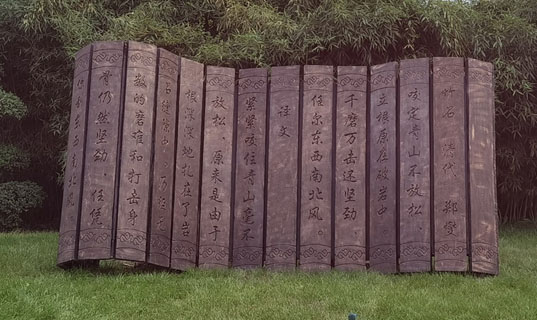 竹石 清代 郑燮
咬定青山不放松
立根原在破岩中
千磨万击还坚劲
任尔东西南北风。
译文
紧紧咬住青山毫不
放松，原来是由于
根深深地扎在了岩
石缝隙中
数的磨难和打击身
骨仍然坚劲，任凭